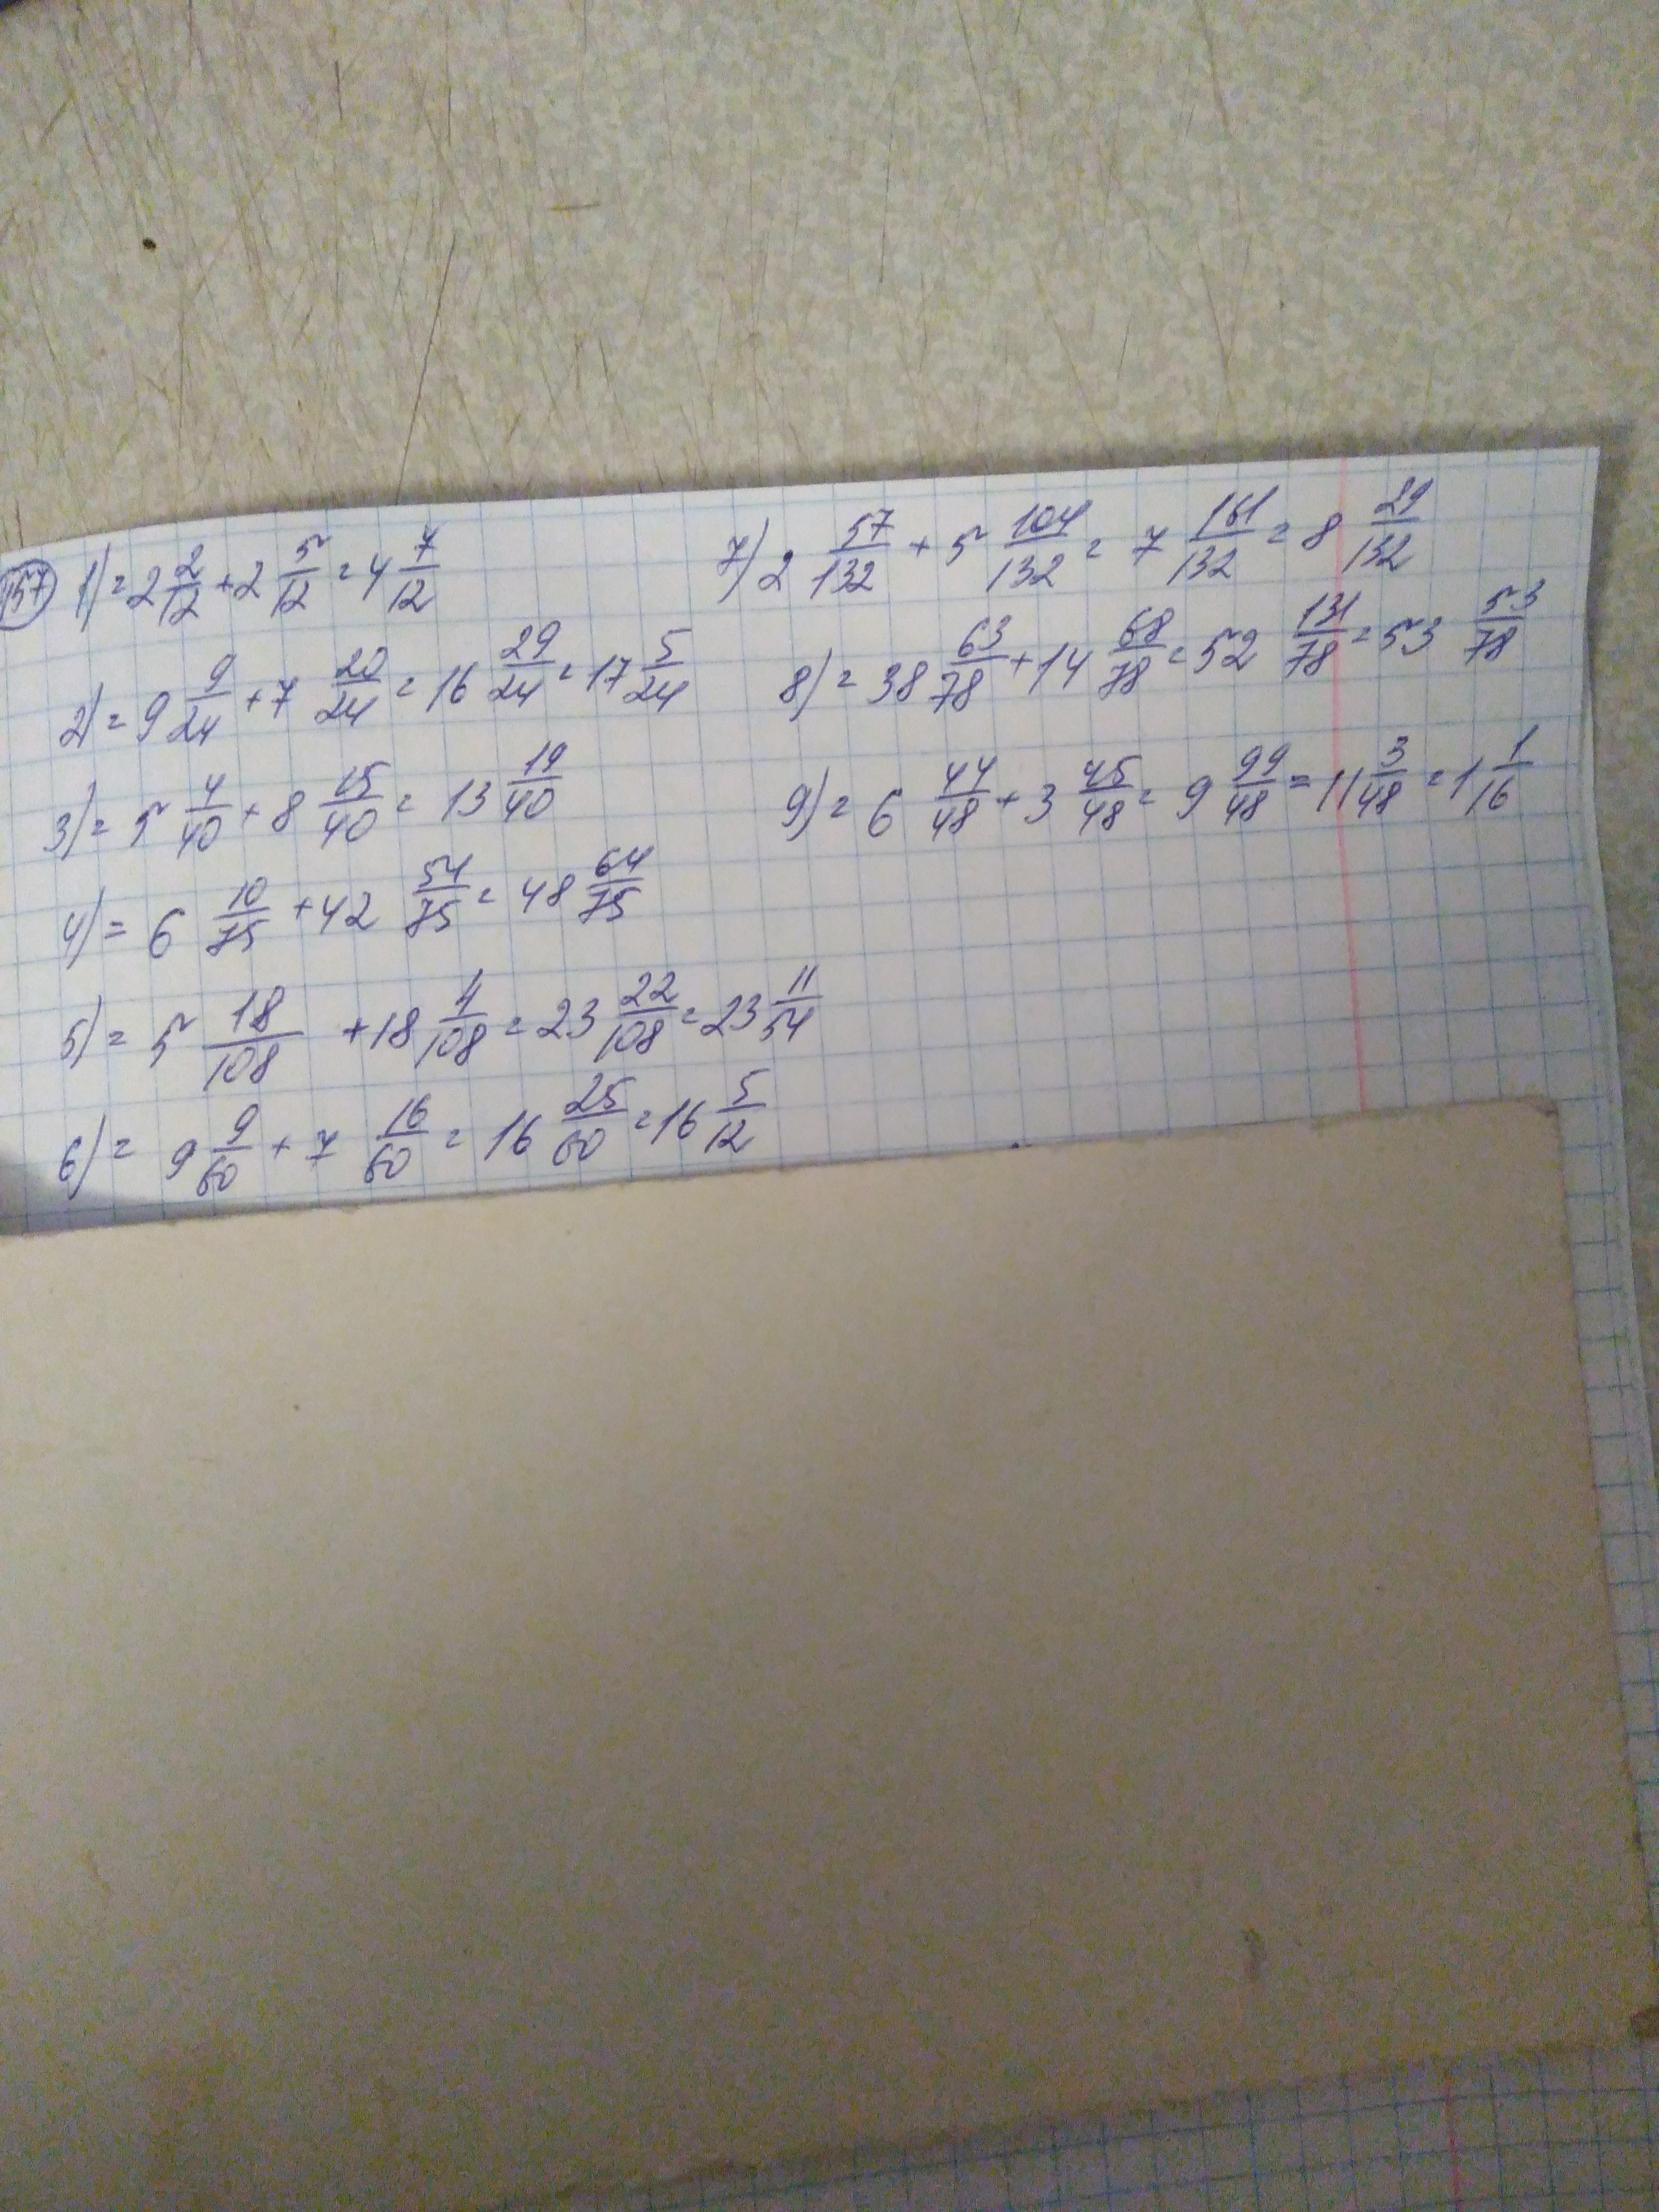 157 1) = 2 2/12 + 2 5/12 = 4 7/12
2) = 9 9/24 + 7 20/24 = 16 29/24 = 17 5/24
3) = 5 4/40 + 8 15/40 = 13 19/40
4) = 6 10/75 + 42 54/75 = 48 64/75
5) = 5 18/108 + 18 4/108 = 23 22/108 = 23 11/54
6) = 9 9/60 + 7 16/60 = 16 25/60 = 16 5/12
7) 2 57/132 + 5 104/132 = 7 161/132 = 8 29/132
8) = 38 63/78 + 14 68/78 = 52 131/78 = 53 53/78
9) = 6 44/48 + 3 45/48 = 9 99/48 = 11 3/48 = 1 1/16